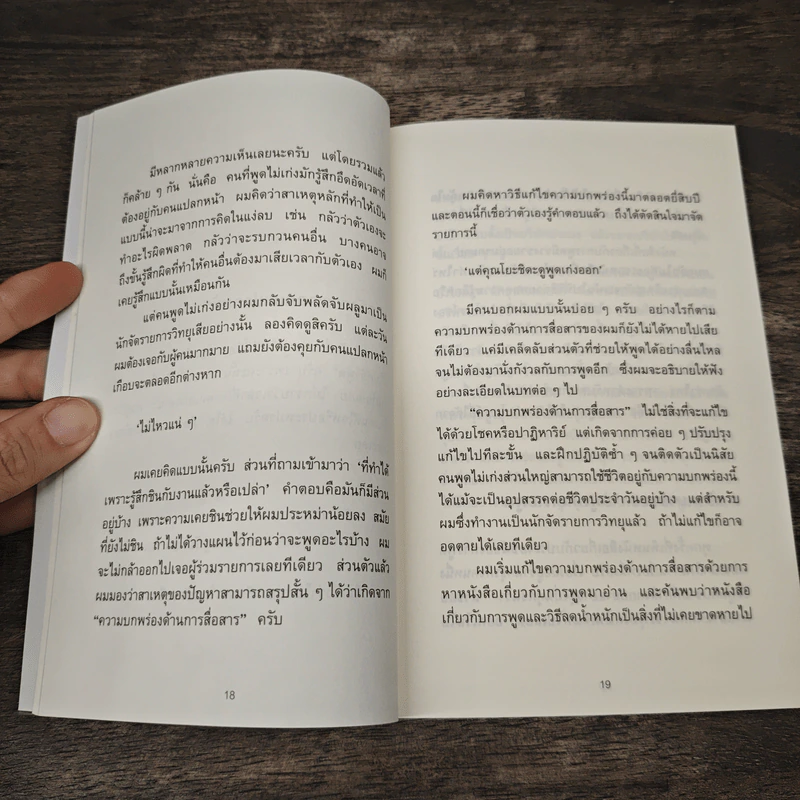 มีหลากหลายความเห็นเลยนะครับ แต่โดยรวมแล้ว
ก็คล้าย ๆ กัน นั่นคือ คนที่พูดไม่เก่งมักรู้สึกอึดอัดเวลาที่
ต้องอยู่กับคนแปลกหน้า ผมคิดว่าสาเหตุหลักที่ทำให้เป็น
แบบนี้น่าจะมาจากการคิดในแง่ลบ เช่น กลัวว่าตัวเองจะ
ทำอะไรผิดพลาด กลัวว่าจะรบกวนคนอื่น บางคนอาจ
ถึงขั้นรู้สึกผิดที่ทำให้คนอื่นต้องมาเสียเวลากับตัวเอง ผมก็
เคยรู้สึกแบบนั้นเหมือนกัน
แต่คนพูดไม่เก่งอย่างผมกลับจับพลัดจับผลูมาเป็น
นักจัดรายการวิทยุเสียอย่างนั้น ลองคิดดูสิครับ แต่ละวัน
ผมต้องเจอกับผู้คนมากมาย แถมยังต้องคุยกับคนแปลกหน้า
เกือบจะตลอดอีกต่างหาก
'ไม่ไหวแน่ ๆ'
ผมเคยคิดแบบนั้นครับ ส่วนที่ถามเข้ามาว่า 'ที่ทำได้
เพราะรู้สึกชินกับงานแล้วหรือเปล่า' คำตอบคือมันก็มีส่วน
อยู่บ้าง เพราะความเคยชินช่วยให้ผมประหม่าน้อยลง สมัย
ที่ยังไม่ชิน ถ้าไม่ได้วางแผนไว้ก่อนว่าจะพูดอะไรบ้าง ผม
จะไม่กล้าออกไปเจอผู้ร่วมรายการเลยทีเดียว ส่วนตัวแล้ว
ผมมองว่าสาเหตุของปัญหาสามารถสรุปสั้น ๆ ได้ว่าเกิดจาก
"ความบกพร่องด้านการสื่อสาร" ครับ
18
ผมคิดหาวิธีแก้ไขความบกพร่องนี้มาตลอดยี่สิบปี
และตอนนี้ก็เชื่อว่าตัวเองรู้คำตอบแล้ว ถึงได้ตัดสินใจมาจัด
รายการนี้
'แต่คุณโยะชิดะดูพูดเก่งออก'
มีคนบอกผมแบบนั้นบ่อย ๆ ครับ อย่างไรก็ตาม
ความบกพร่องด้านการสื่อสารของผมก็ยังไม่ได้หายไปเสีย
ทีเดียว แค่มีเคล็ดลับส่วนตัวที่ช่วยให้พูดได้อย่างลื่นไหล
จนไม่ต้องมานั่งกังวลกับการพูดอีก ซึ่งผมจะอธิบายให้ฟัง
อย่างละเอียดในบทต่อ ๆ ไป
"ความบกพร่องด้านการสื่อสาร" ไม่ใช่สิ่งที่จะแก้ไข
ได้ด้วยโชคหรือปาฏิหาริย์ แต่เกิดจากการค่อย ๆ ปรับปรุง
แก้ไขไปทีละขั้น และฝึกปฏิบัติซ้ำ ๆ จนติดตัวเป็นนิสัย
คนพูดไม่เก่งส่วนใหญ่สามารถใช้ชีวิตอยู่กับความบกพร่องนี้
ได้แม้จะเป็นอุปสรรคต่อชีวิตประจำวันอยู่บ้าง แต่สำหรับ
ผมซึ่งทำงานเป็นนักจัดรายการวิทยุแล้ว ถ้าไม่แก้ไขก็อาจ
อดตายได้เลยทีเดียว
ผมเริ่มแก้ไขความบกพร่องด้านการสื่อสารด้วยการ
หาหนังสือเกี่ยวกับการพูดมาอ่าน และค้นพบว่าหนังสือ
เกี่ยวกับการพูดและวิธีลดน้ำหนักเป็นสิ่งที่ไม่เคยขาดหายไป
19